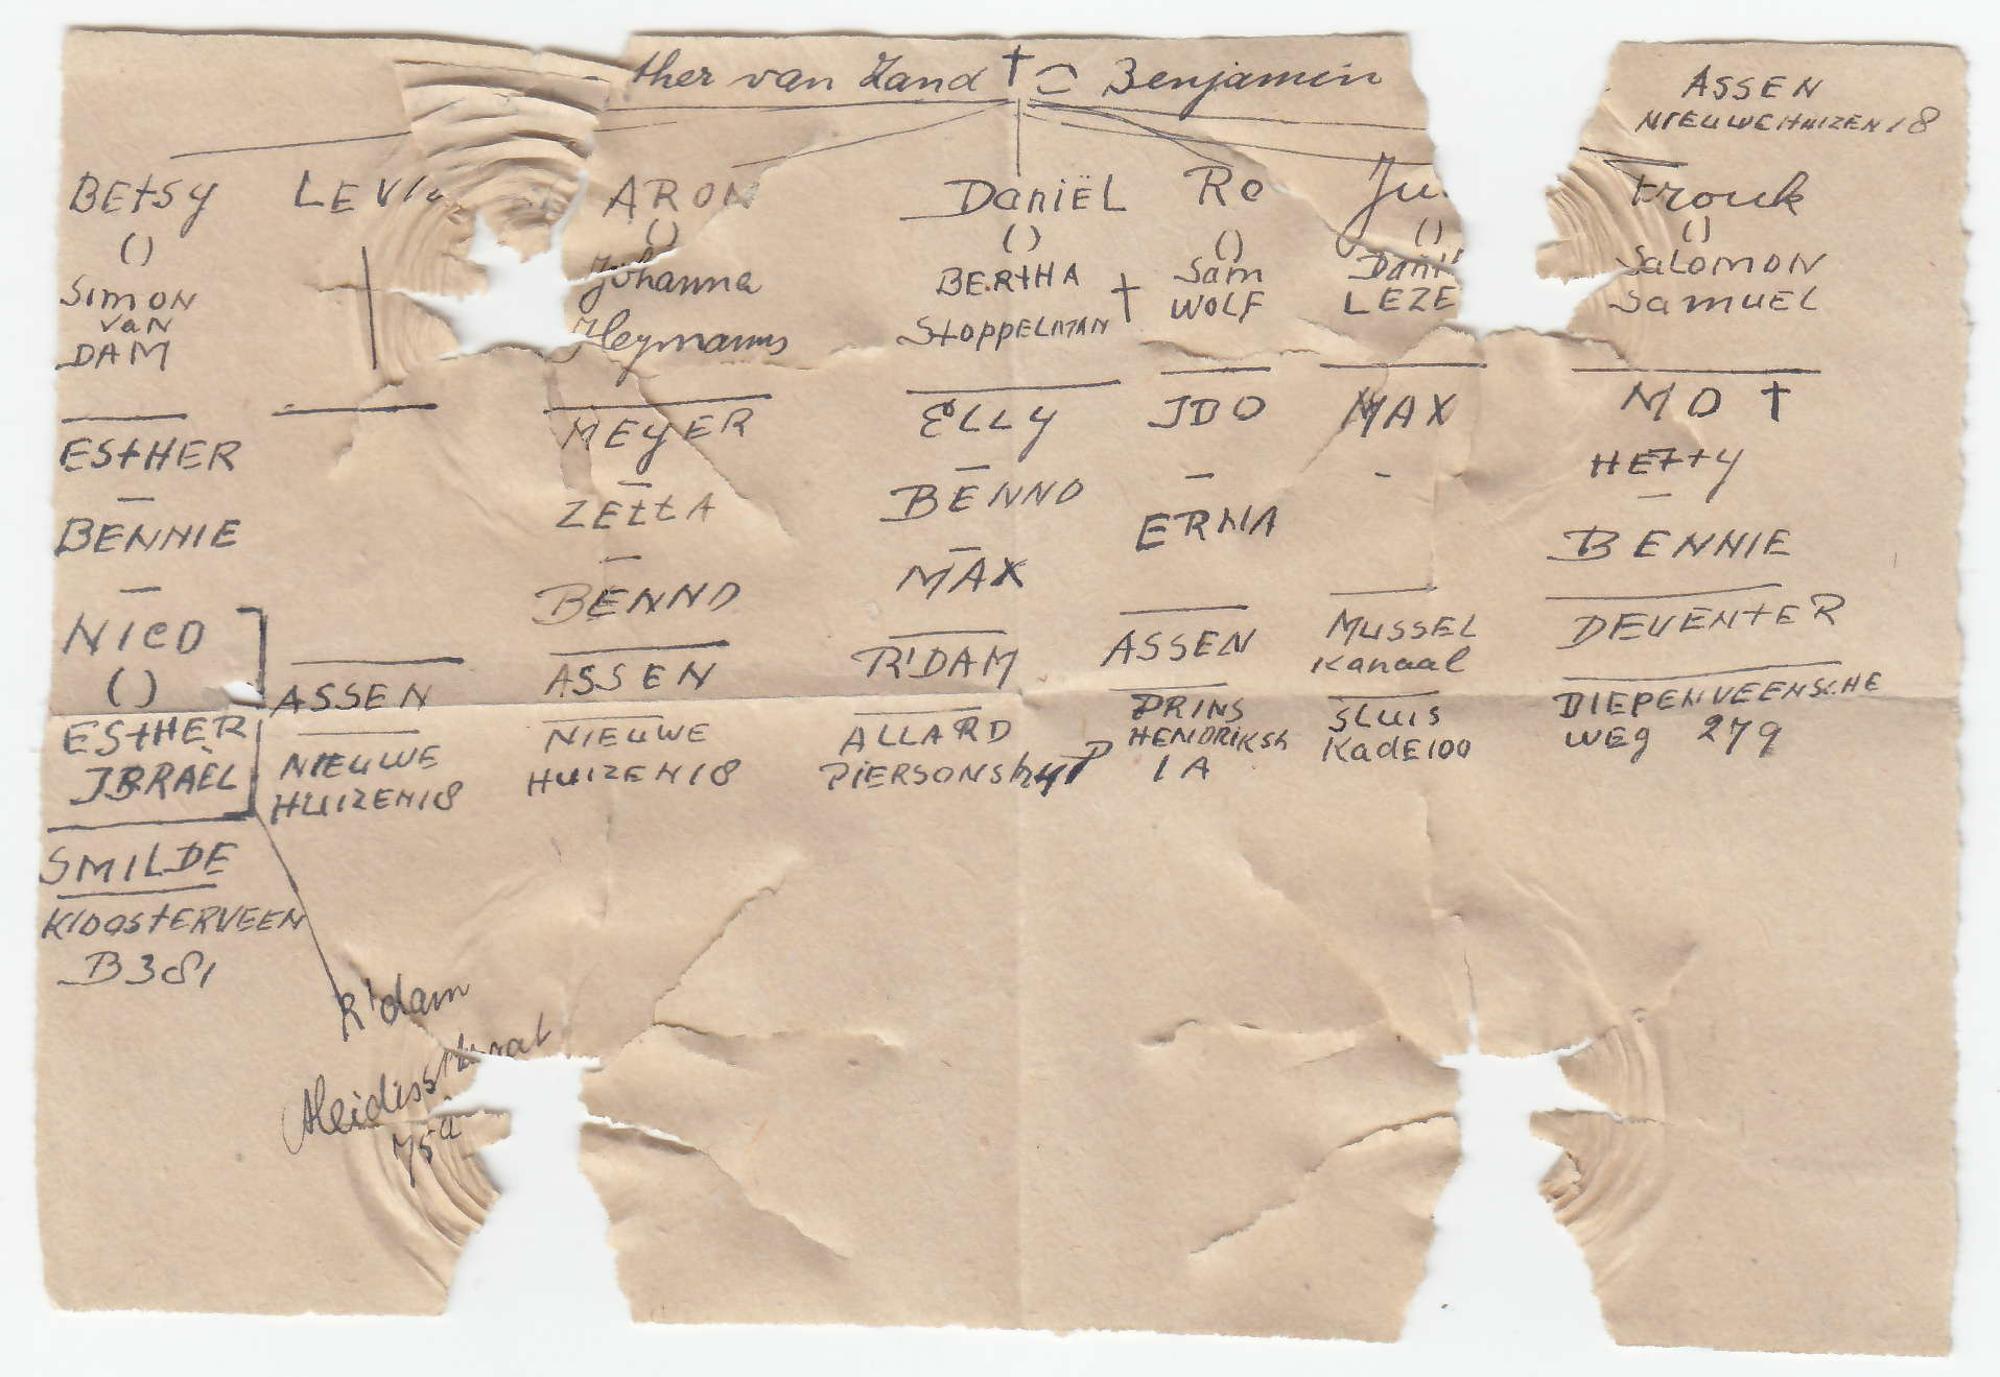 ther van Zand † Benjamin
ASSEN
NIEUWEHUIZEN 18
BEtSY
()
SIMON
VAN
DAM
ESTHER
—
BENNIE
—
NICO
()
ESTHER
SMILDE
KLOOSTERVEEN
B 381
R'dam
75a
LEVI
†
ASSEN
NIEUWE
HUIZEN 18
ARON
()
Johanna
Heymanns
MEYER
—
ZEttA
—
BENNO
ASSEN
NIEUWE
HUIZEN 18
DaniËL
()
BERtHA
StOPPELMAN †
ELLY
—
BENNO
—
MAX
R'DAM
ALLARD
()
Sam
WOLF
—
ERNA
ASSEN
PRINS
1 A
Ju
()
LEZE
MAX
-
MUSSEL
Kanaal
SLUIS
KaDE 100
()
SaLOMON
SamUEL
MO †
HEttY
—
BENNIE
DEVENtER
DIEPENVEENSCHE
WEg 279